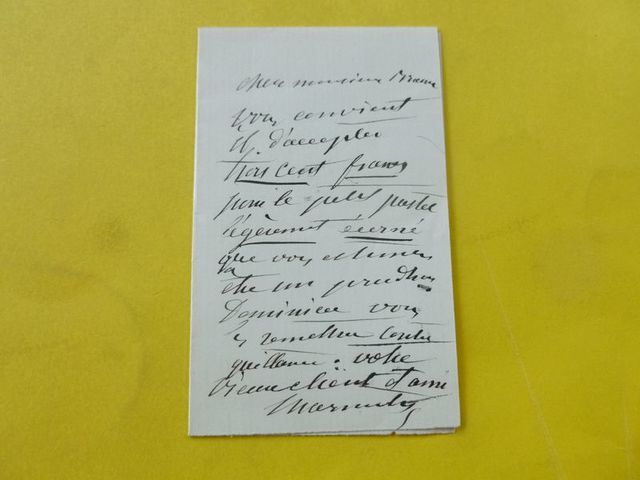 cher monsieur
Vous convient
il d'accepter
trois cent francs
pour le petit pastel
légèrement écorné
que vous estimez
être un prudhon
Dominica vous
les remettra contre
quittance. votre
vieux client et ami